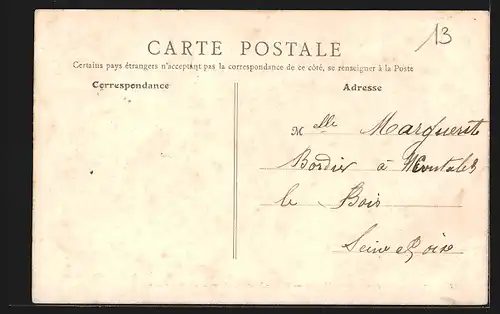 13
CARTE POSTALE
Certains pays étrangers n'acceptant pas la correspondance de ce côté, se renseigner à la Poste
Correspondance
Adresse
Mlle Marguerit
Bordier à
le Bois
Seine et Oise